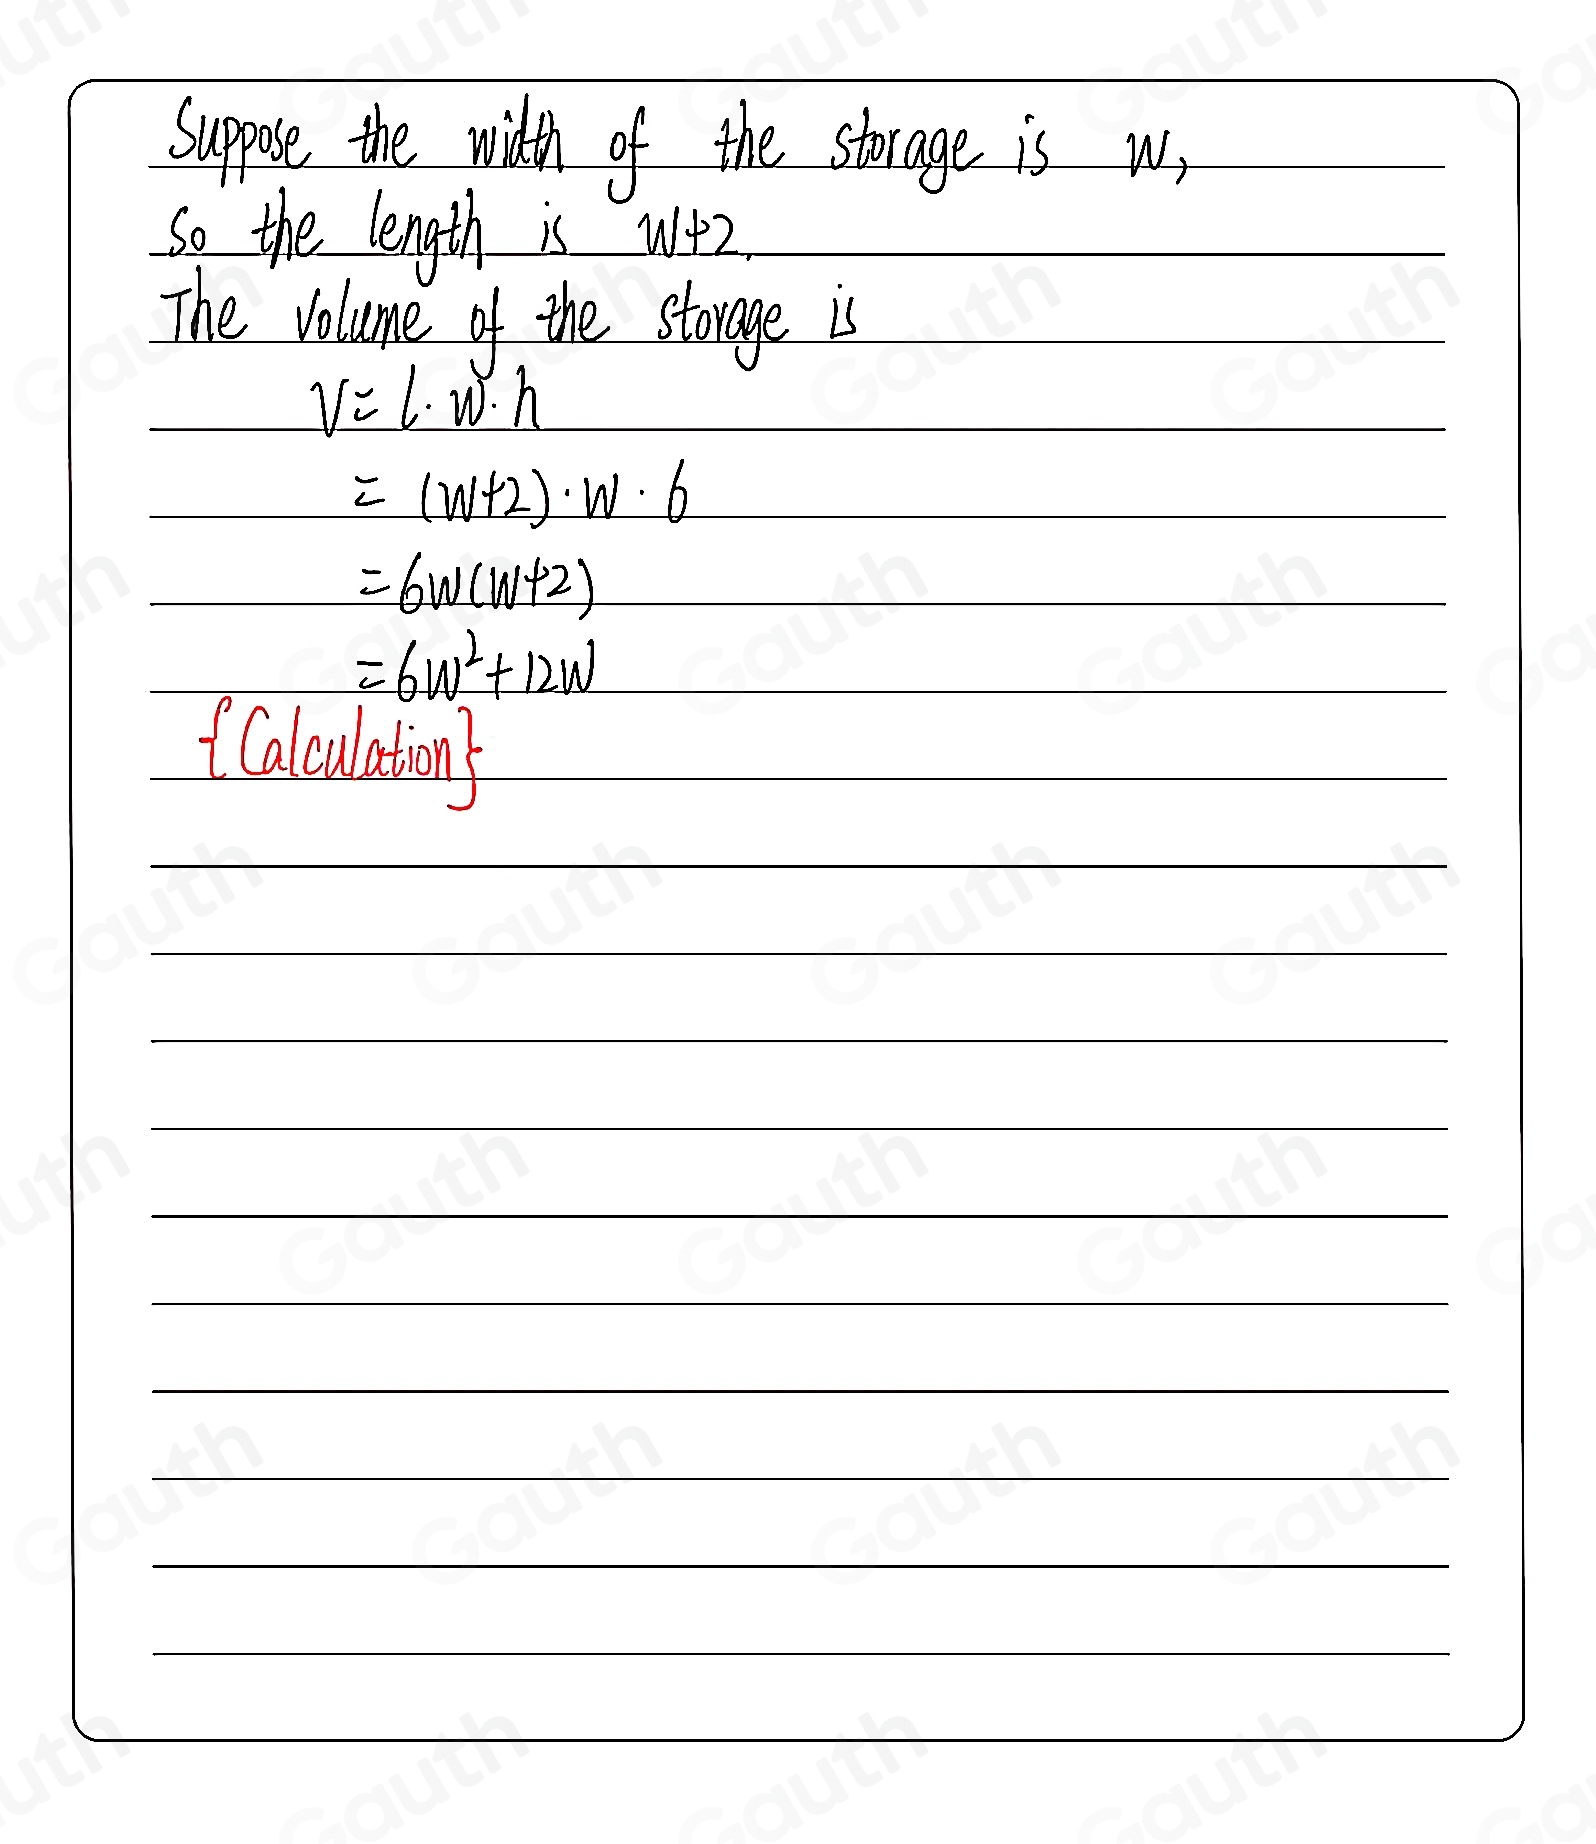 Suppose the width of the storage is w,
so the length is w+2.
The volume of the storage is
V = l · w · h
= (w+2) · w · 6
= 6w(w+2)
= 6w²+12w
{Calculation}